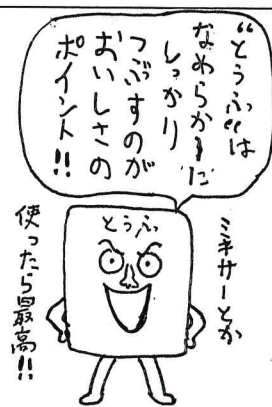 “とうふ”は
なめらかまに
しっかり
つぶすのが
おいしさの
ポイント!!
とうふ
ミキサーとか
使ったら最高!!